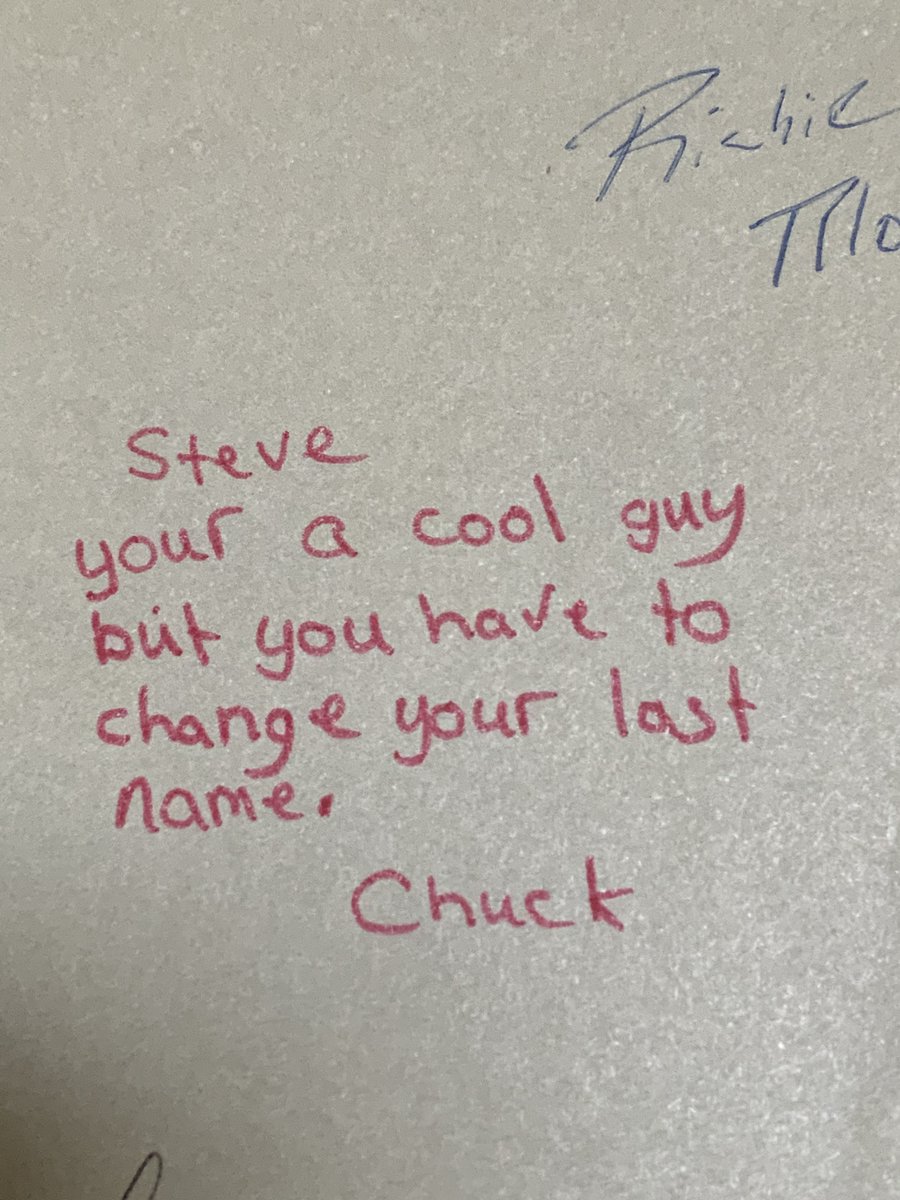 Richie
Steve
your a cool guy
but you have to
change your last
name.
Chuck